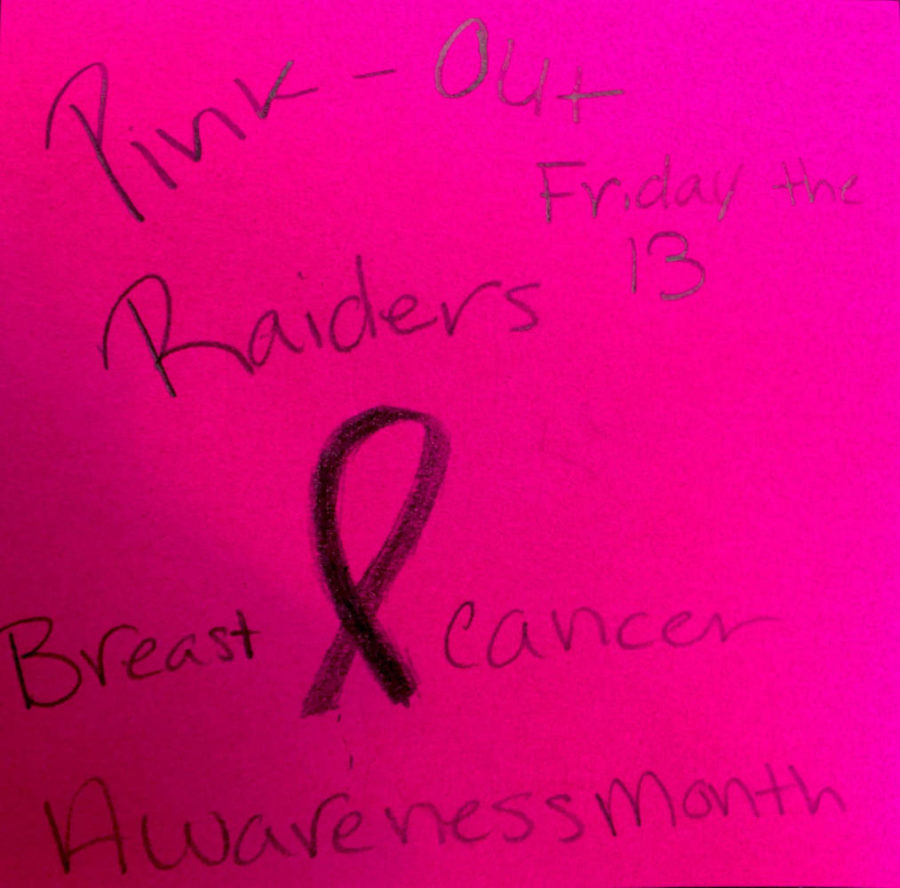 Pink-Out
Friday the
13
Raiders
Breast cancer
Awareness Month